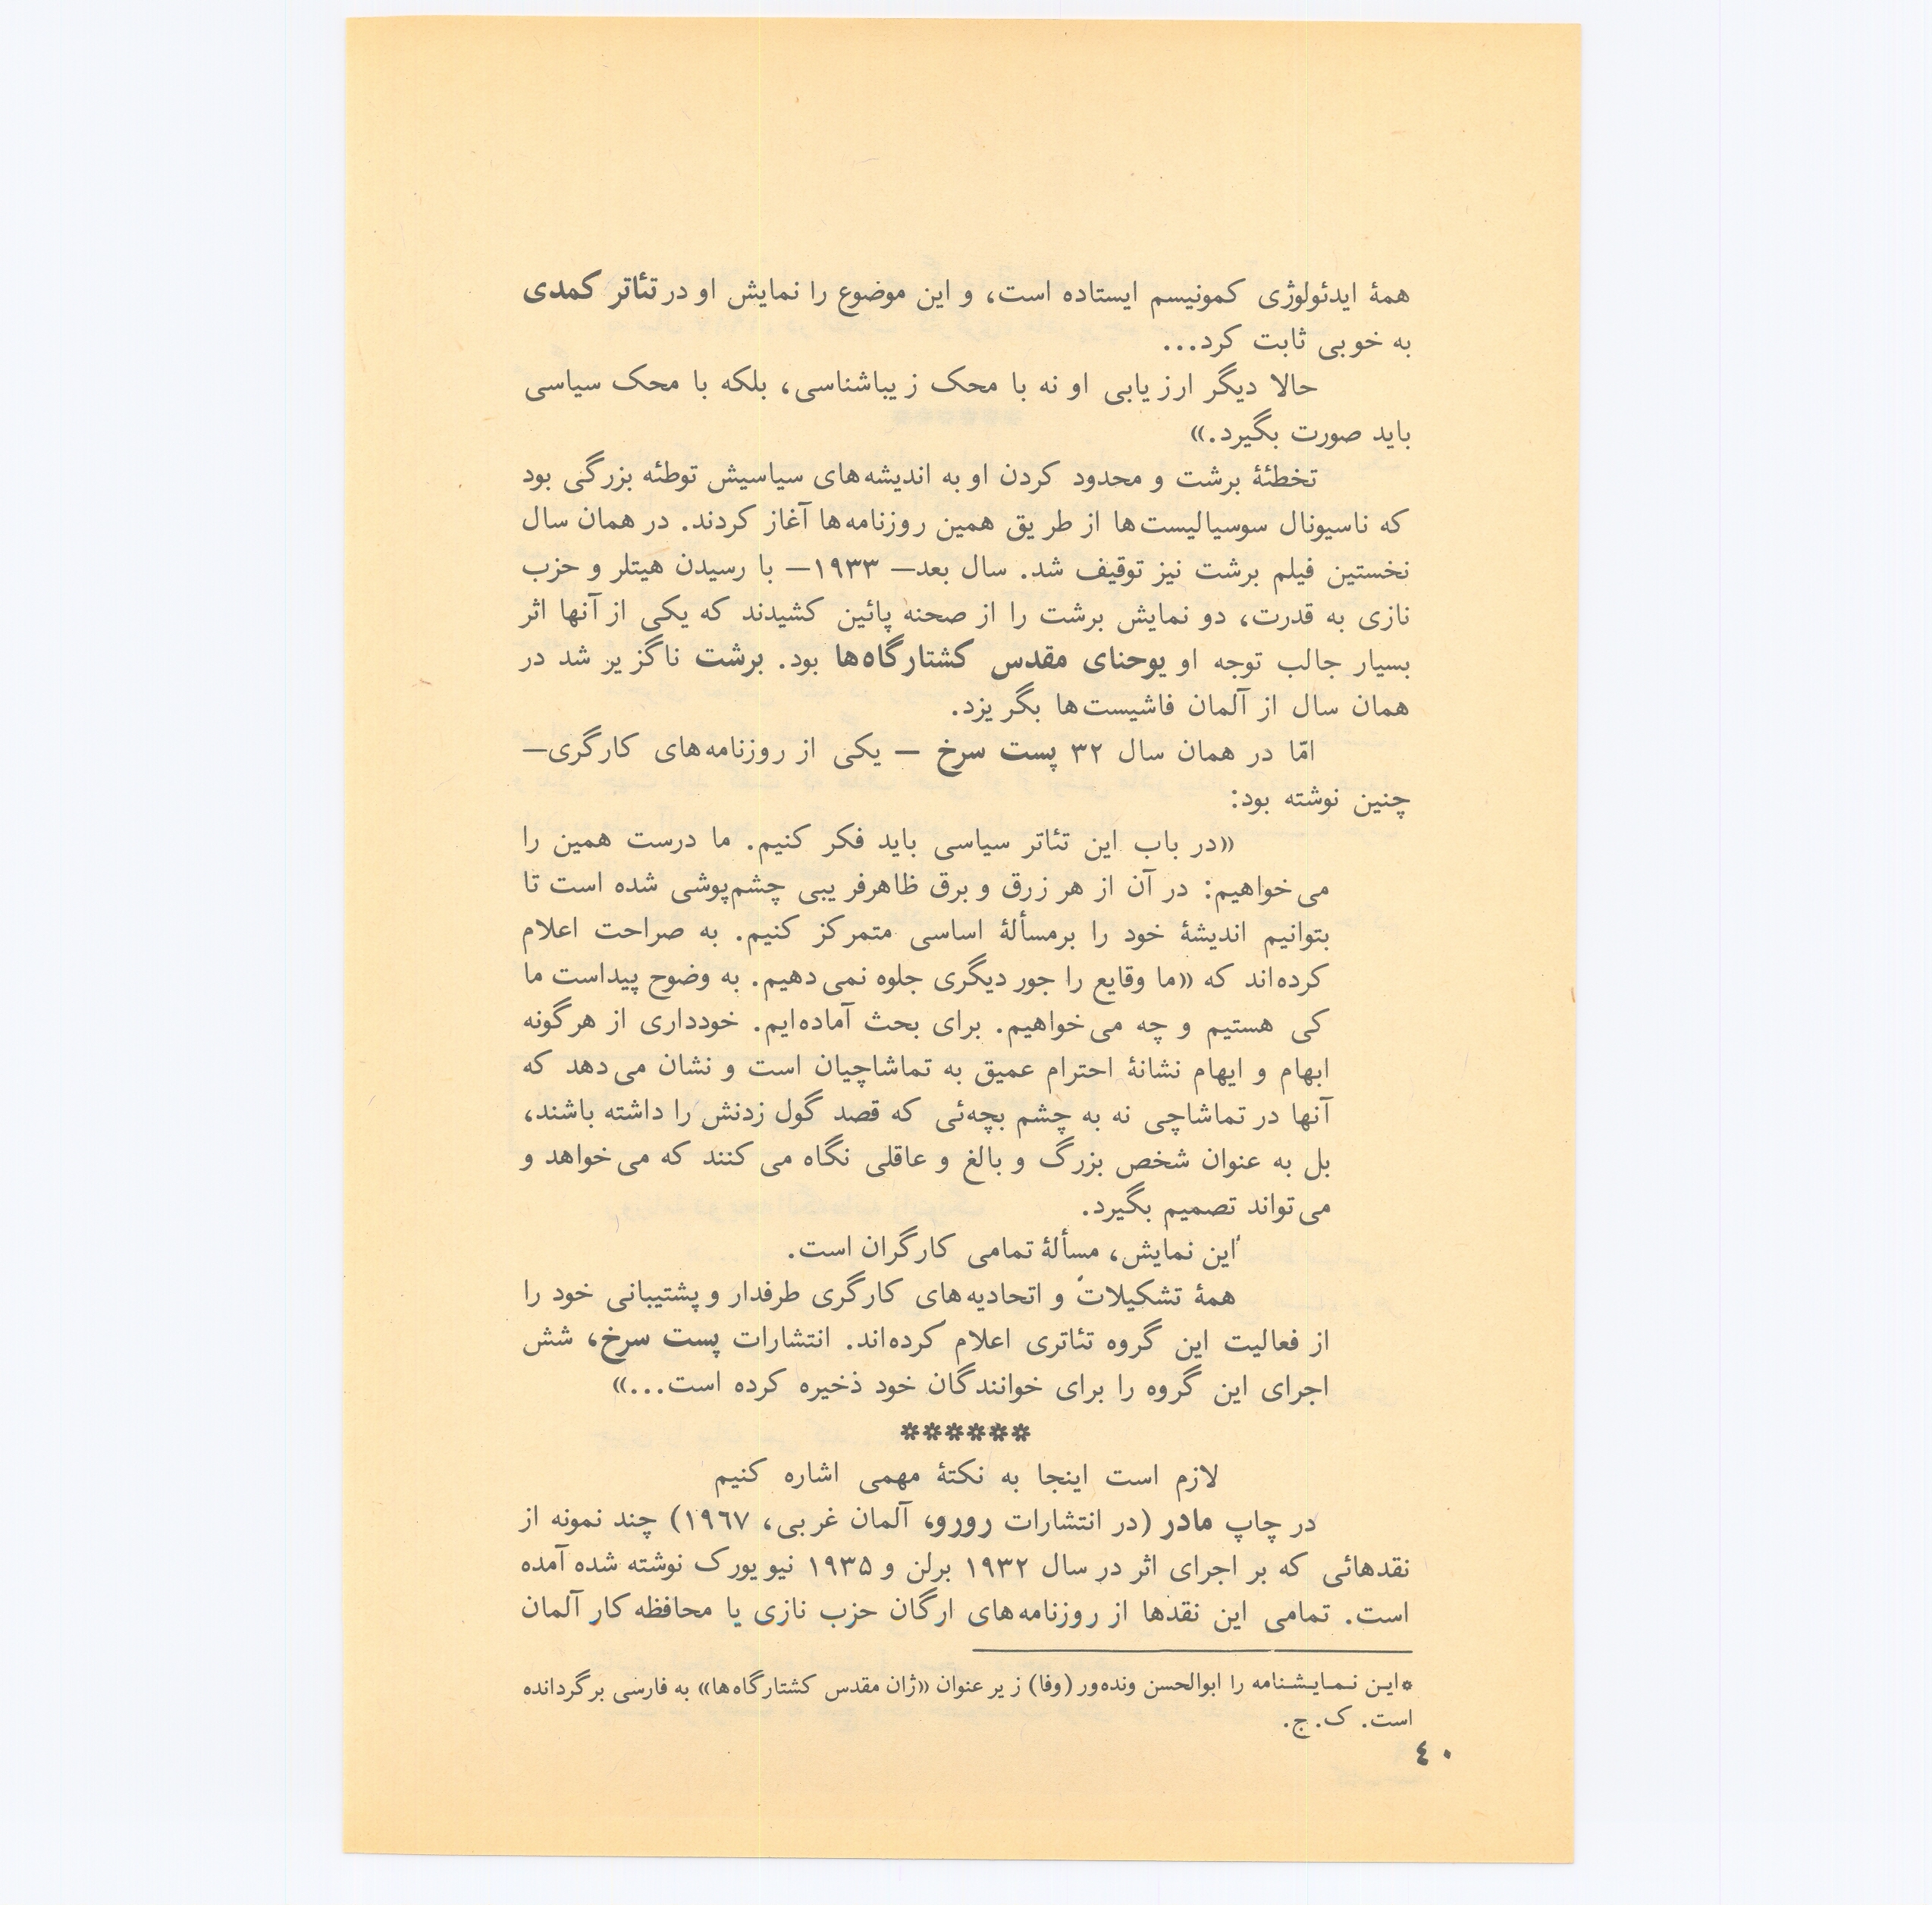 همهٔ ایدئولوژی کمونیسم ایستاده است، و این موضوع را نمایش او در تئاتر کمدی
به خوبی ثابت کرد...
حالا دیگر ارزیابی او نه با محک زیباشناسی، بلکه با محک سیاسی
باید صورت بگیرد.»
تخطئهٔ برشت و محدود کردن او به اندیشه‌های سیاسیش توطئه بزرگی بود
که ناسیونال سوسیالیست‌ها از طریق همین روزنامه‌ها آغاز کردند. در همان سال
نخستین فیلم برشت نیز توقیف شد. سال بعد— ۱۹۳۳— با رسیدن هیتلر و حزب
نازی به قدرت، دو نمایش برشت را از صحنه پائین کشیدند که یکی از آنها اثر
بسیار جالب توجه او یوحنای مقدس کشتارگاه‌ها بود. برشت ناگزیر شد در
همان سال از آلمان فاشیست‌ها بگریزد.
امّا در همان سال ۳۲ پست سرخ — یکی از روزنامه‌های کارگری—
چنین نوشته بود:
«در باب این تئاتر سیاسی باید فکر کنیم. ما درست همین را
می‌خواهیم: در آن از هر زرق و برق ظاهرفریبی چشم‌پوشی شده است تا
بتوانیم اندیشهٔ خود را برمسألهٔ اساسی متمرکز کنیم. به صراحت اعلام
کرده‌اند که «ما وقایع را جور دیگری جلوه نمی‌دهیم. به وضوح پیداست ما
کی هستیم و چه می‌خواهیم. برای بحث آماده‌ایم. خودداری از هرگونه
ابهام و ایهام نشانهٔ احترام عمیق به تماشاچیان است و نشان می‌دهد که
آنها در تماشاچی نه به چشم بچه‌ئی که قصد گول زدنش را داشته باشند،
بل به عنوان شخص بزرگ و بالغ و عاقلی نگاه می‌کنند که می‌خواهد و
می‌تواند تصمیم بگیرد.
این نمایش، مسألهٔ تمامی کارگران است.
همهٔ تشکیلات و اتحادیه‌های کارگری طرفدار و پشتیبانی خود را
از فعالیت این گروه تئاتری اعلام کرده‌اند. انتشارات پست سرخ، شش
اجرای این گروه را برای خوانندگان خود ذخیره کرده است...»
******
لازم است اینجا به نکتهٔ مهمی اشاره کنیم
در چاپ مادر (در انتشارات رورو، آلمان غربی، ۱۹٦۷) چند نمونه از
نقدهائی که بر اجرای اثر در سال ۱۹۳۲ برلن و ۱۹۳۵ نیویورک نوشته شده آمده
است. تمامی این نقدها از روزنامه‌های ارگان حزب نازی یا محافظه‌کار آلمان
*این نمایشنامه را ابوالحسن ونده‌ور (وفا) زیر عنوان «ژان مقدس کشتارگاه‌ها» به فارسی برگردانده
است. ک. ج.
٤۰